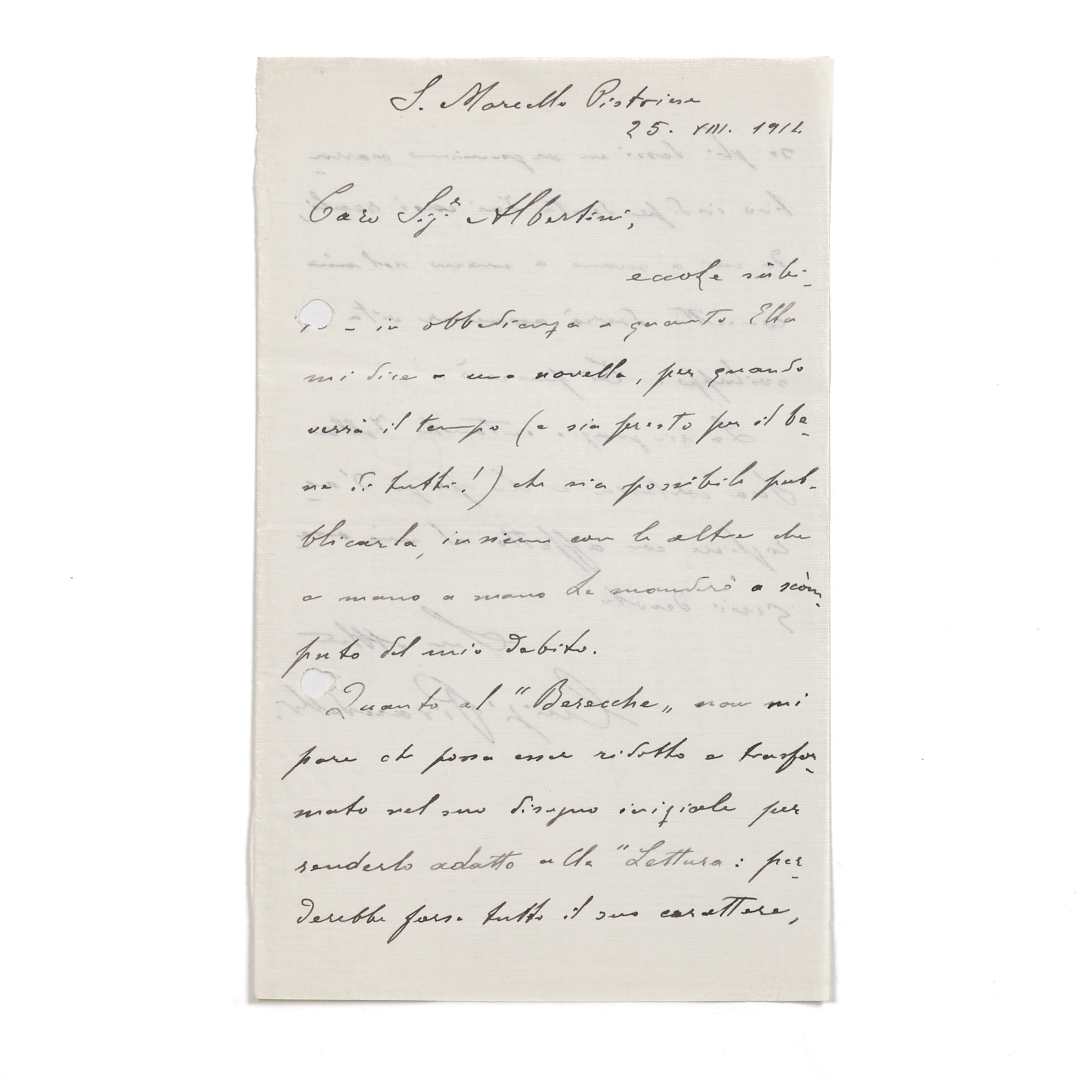 S. Marcello Pistoiese
25. VIII. 1914
Caro Sig.r Albertini,
eccole sùbi-
to – in obbedienza a quanto Ella
mi dice – una novella, per quando
verrà il tempo (e sia presto per il be-
ne di tutti!) che sia possibile pub-
blicarla, insieme con le altre che
a mano a mano Le manderò a scòm-
puto del mio debito.
Quanto al "Berecche„ non mi
pare che possa esser ridotto e trasfor-
mato nel suo disegno iniziale per
renderlo adatto alla "Lettura: per-
derebbe forse tutto il suo carattere,